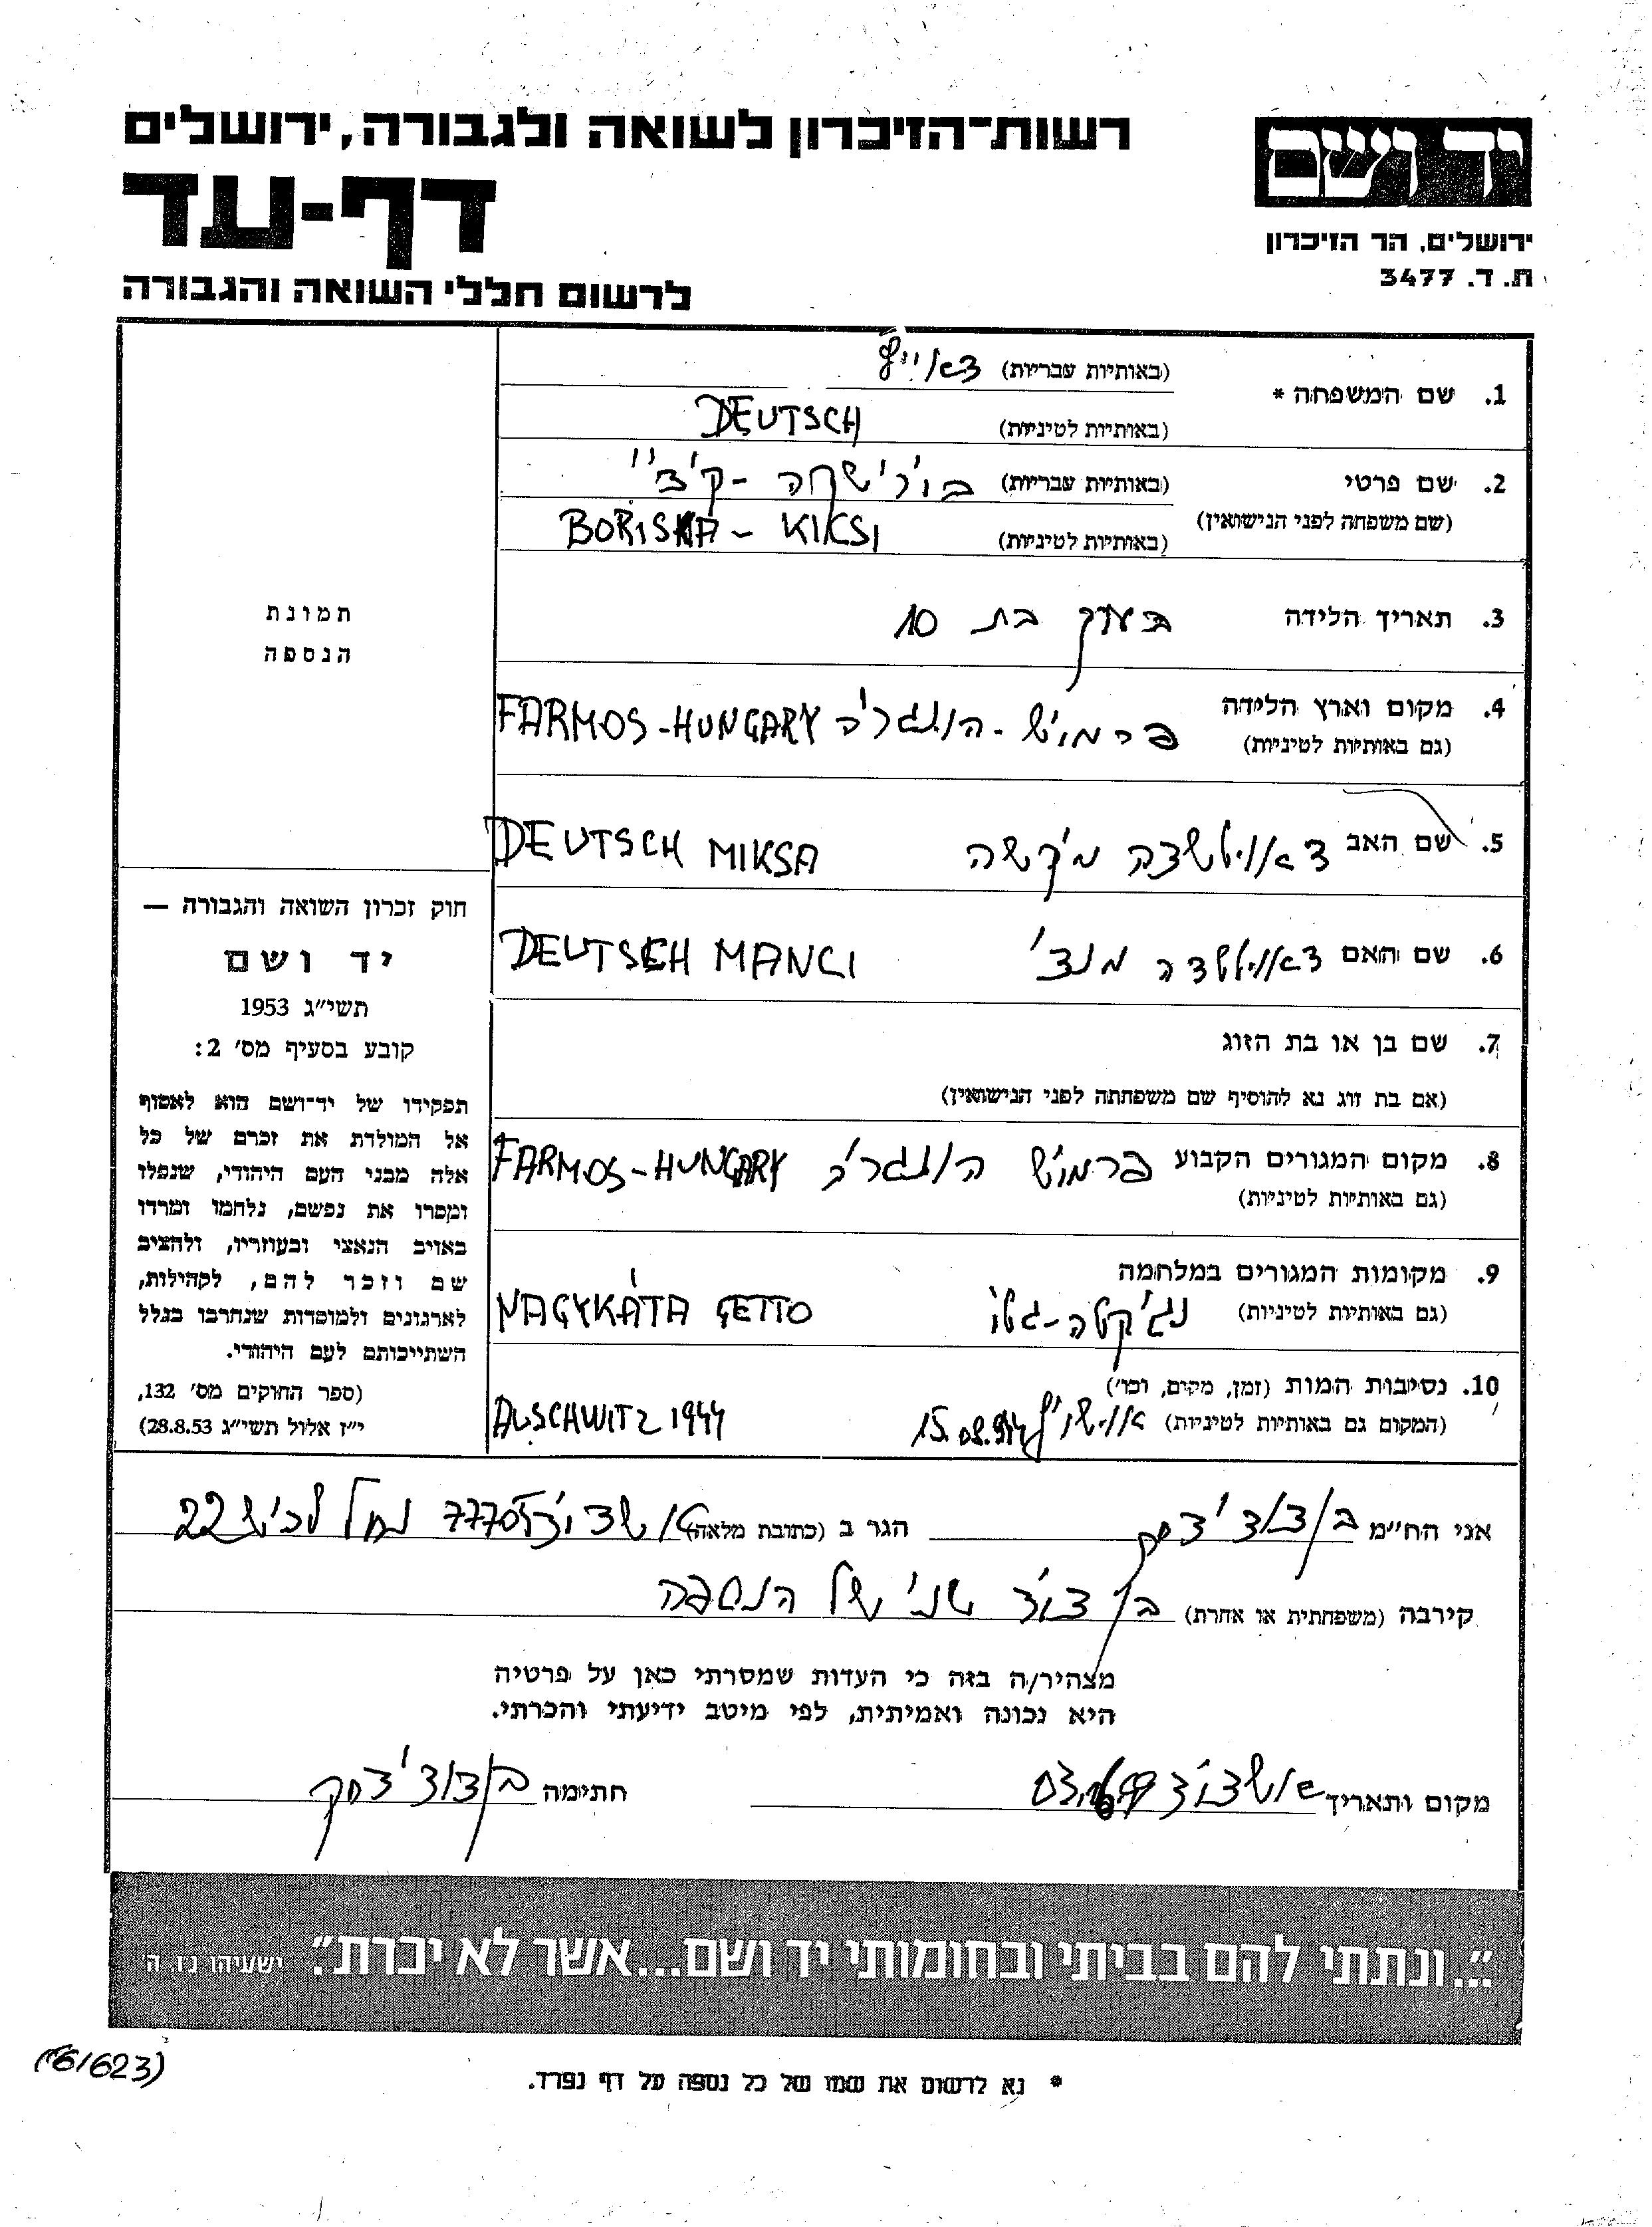 רשות־הזיכרון לשואה ולגבורה, ירושלים
דף-עד
לרשום חללי השואה והגבורה
יד ושם
ירושלים, הר הזיכרון
ת. ד. 3477
1. שם המשפחה * (באותיות עבריות)
(באותיות לטיניות) DEUTSCH
2. שם פרטי (באותיות עבריות) בורישקה -
(שם משפחה לפני הנישואין)
(באותיות לטיניות) BORISKA - KIKSI
3. תאריך הלידה בערך בת 10
4. מקום וארץ הלידה פרמוש - הונגריה FARMOS-HUNGARY
(גם באותיות לטיניות)
5. שם האב מיקשה DEUTSCH MIKSA
6. שם האם מנצי DEUTSCH MANCI
7. שם בן או בת הזוג
(אם בת זוג נא להוסיף שם משפחתה לפני הנישואין)
8. מקום המגורים הקבוע פרמוש הונגריה FARMOS-HUNGARY
(גם באותיות לטיניות)
9. מקומות המגורים במלחמה
(גם באותיות לטיניות) נג'קטה-גטו NAGYKÁTA GETTO
10. נסיבות המות (זמן, מקום, וכו')
(המקום גם באותיות לטיניות) אושויץ 15.08.944 AUSCHWITZ 1944
תמונת
הנספה
חוק זכרון השואה והגבורה —
יד ושם
תשי"ג 1953
קובע בסעיף מס' 2:
תפקידו של יד־ושם הוא לאסוף
אל המולדת את זכרם של כל
אלה מבני העם היהודי, שנפלו
ומסרו את נפשם, נלחמו ומרדו
באויב הנאצי ובעוזריו, ולהציב
שם וזכר להם, לקהילות,
לארגונים ולמוסדות שנחרבו בגלל
השתייכותם לעם היהודי.
(ספר החוקים מס' 132,
י"ז אלול תשי"ג 28.8.53)
אני הח"מ הגר ב (כתובת מלאה) אשדוד 77705 נחל לכיש 22
קירבה (משפחתית או אחרת) בן דוד שני של הנספה
מצהיר/ה בזה כי העדות שמסרתי כאן על פרטיה
היא נכונה ואמיתית, לפי מיטב ידיעתי והכרתי.
מקום ותאריך אשדוד חתימה
"...ונתתי להם בביתי ובחומותי יד ושם...אשר לא יכרת". ישעיהו נ״ו. ה׳
* נא לרשום את שמו של כל נספה על דף נפרד.